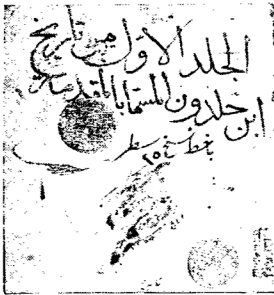 الجلد الاول من تاريخ
ابن خلدون المسمابالمقدمة
بخط نسخ ١٥ سطر